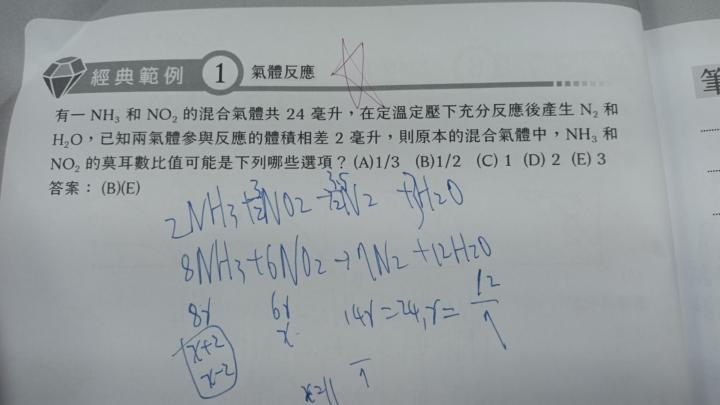 經典範例 1 氣體反應
筆
有一 NH₃ 和 NO₂ 的混合氣體共 24 毫升，在定溫定壓下充分反應後產生 N₂ 和
H₂O，已知兩氣體參與反應的體積相差 2 毫升，則原本的混合氣體中，NH₃ 和
NO₂ 的莫耳數比值可能是下列哪些選項？(A)1/3 (B)1/2 (C) 1 (D) 2 (E) 3
答案： (B)(E)
2NH3+3/2NO2→ N2 +3H2O
8NH3+6NO2→7N2+12H2O
8r 6r 14r=24, r= 12/7
x+2 x
x-2